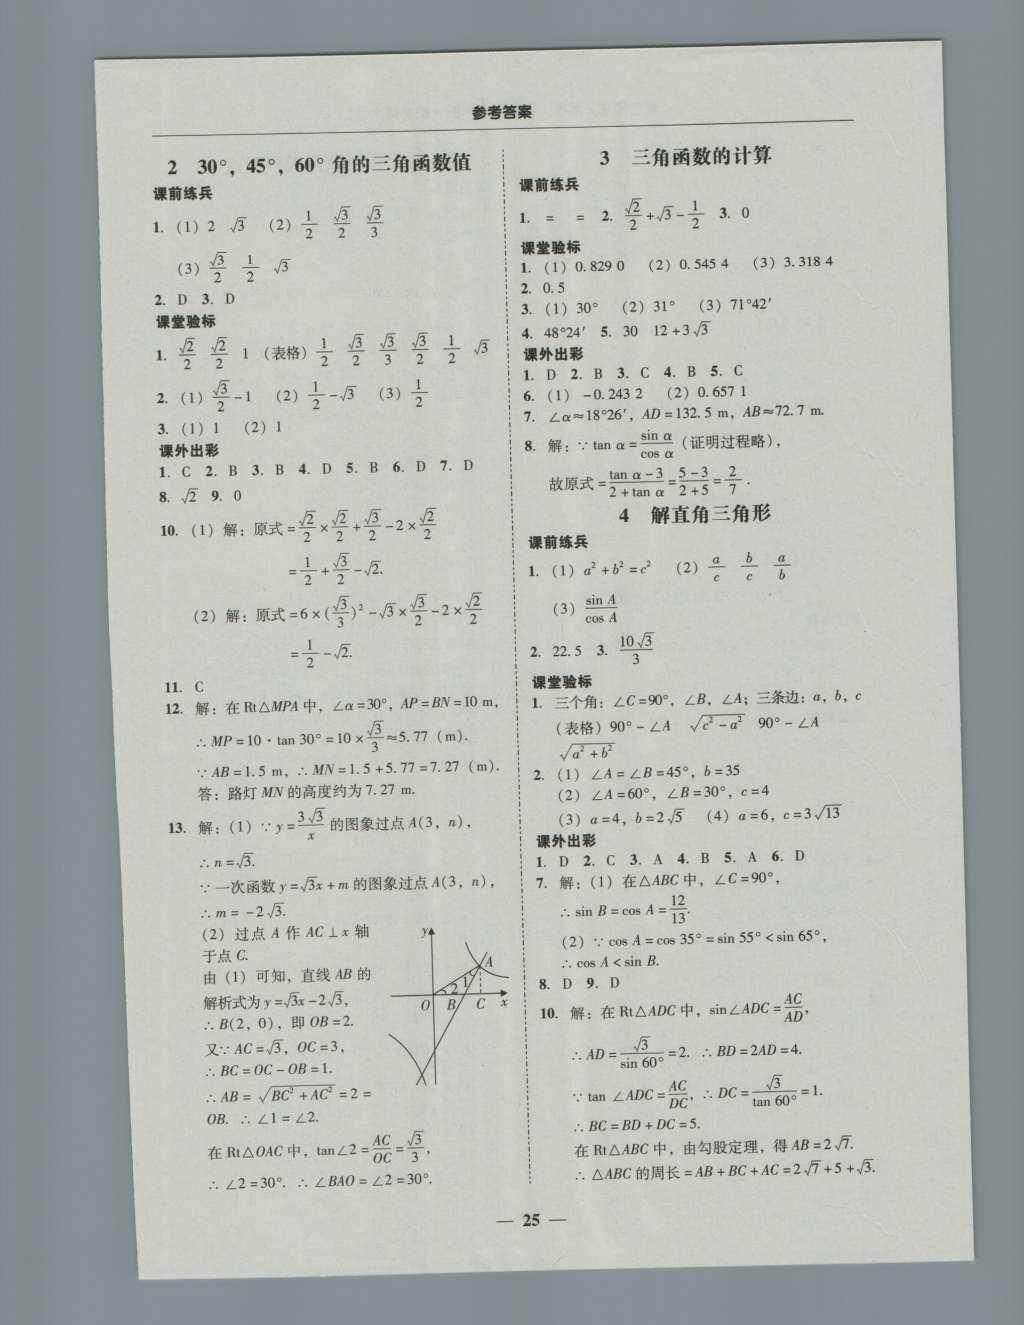 参考答案
2 30°，45°，60°角的三角函数值
课前练兵
1. （1）2 √3 （2）1/2 √3/2 √3/3
（3）√3/2 1/2 √3
2. D 3. D
课堂验标
1. √2/2 √2/2 1 （表格）1/2 √3/2 √3/3 √3/2 1/2 √3
2. （1）√3/2-1 （2）1/2-√3 （3）1/2
3. （1）1 （2）1
课外出彩
1. C 2. B 3. B 4. D 5. B 6. D 7. D
8. √2 9. 0
10. （1）解：原式=√2/2×√2/2+√3/2-2×√2/2
=1/2+√3/2-√2.
（2）解：原式=6×(√3/3)²-√3×√3/2-2×√2/2
=1/2-√2.
11. C
12. 解：在Rt△MPA中，∠α=30°，AP=BN=10 m，
∴MP=10·tan 30°=10×√3/3≈5.77（m）.
∵AB=1.5 m，∴MN=1.5+5.77=7.27（m）.
答：路灯MN的高度约为7.27 m.
13. 解：（1）∵y=3√3/x的图象过点A(3，n)，
∴n=√3.
∵一次函数y=√3x+m的图象过点A(3，n)，
∴m=-2√3.
（2）过点A作AC⊥x轴
于点C.
由（1）可知，直线AB的
解析式为y=√3x-2√3，
∴B(2，0)，即OB=2.
又∵AC=√3，OC=3，
∴BC=OC-OB=1.
∴AB=√(BC²+AC²)=2=
OB. ∴∠1=∠2.
在Rt△OAC中，tan∠2=AC/OC=√3/3，
∴∠2=30°. ∴∠BAO=∠2=30°.
y
A
2 1
O B C x
3 三角函数的计算
课前练兵
1. = = 2. √2/2+√3-1/2 3. 0
课堂验标
1. （1）0.829 0 （2）0.545 4 （3）3.318 4
2. 0.5
3. （1）30° （2）31° （3）71°42′
4. 48°24′ 5. 30 12+3√3
课外出彩
1. D 2. B 3. C 4. B 5. C
6. （1）-0.243 2 （2）0.657 1
7. ∠α≈18°26′，AD=132.5 m，AB≈72.7 m.
8. 解：∵tan α=sin α/cos α（证明过程略），
故原式=(tan α-3)/(2+tan α)=(5-3)/(2+5)=2/7.
4 解直角三角形
课前练兵
1. （1）a²+b²=c² （2）a/c b/c a/b
（3）sin A/cos A
2. 22.5 3. 10√3/3
课堂验标
1. 三个角：∠C=90°，∠B，∠A；三条边：a，b，c
（表格）90°-∠A √(c²-a²) 90°-∠A
√(a²+b²)
2. （1）∠A=∠B=45°，b=35
（2）∠A=60°，∠B=30°，c=4
（3）a=4，b=2√5 （4）a=6，c=3√13
课外出彩
1. D 2. C 3. A 4. B 5. A 6. D
7. 解：（1）在△ABC中，∠C=90°，
∴sin B=cos A=12/13.
（2）∵cos A=cos 35°=sin 55°<sin 65°，
∴cos A<sin B.
8. D 9. D
10. 解：在Rt△ADC中，sin∠ADC=AC/AD，
∴AD=√3/sin 60°=2. ∴BD=2AD=4.
∵tan ∠ADC=AC/DC，∴DC=√3/tan 60°=1.
∴BC=BD+DC=5.
在Rt△ABC中，由勾股定理，得AB=2√7.
∴△ABC的周长=AB+BC+AC=2√7+5+√3.
— 25 —